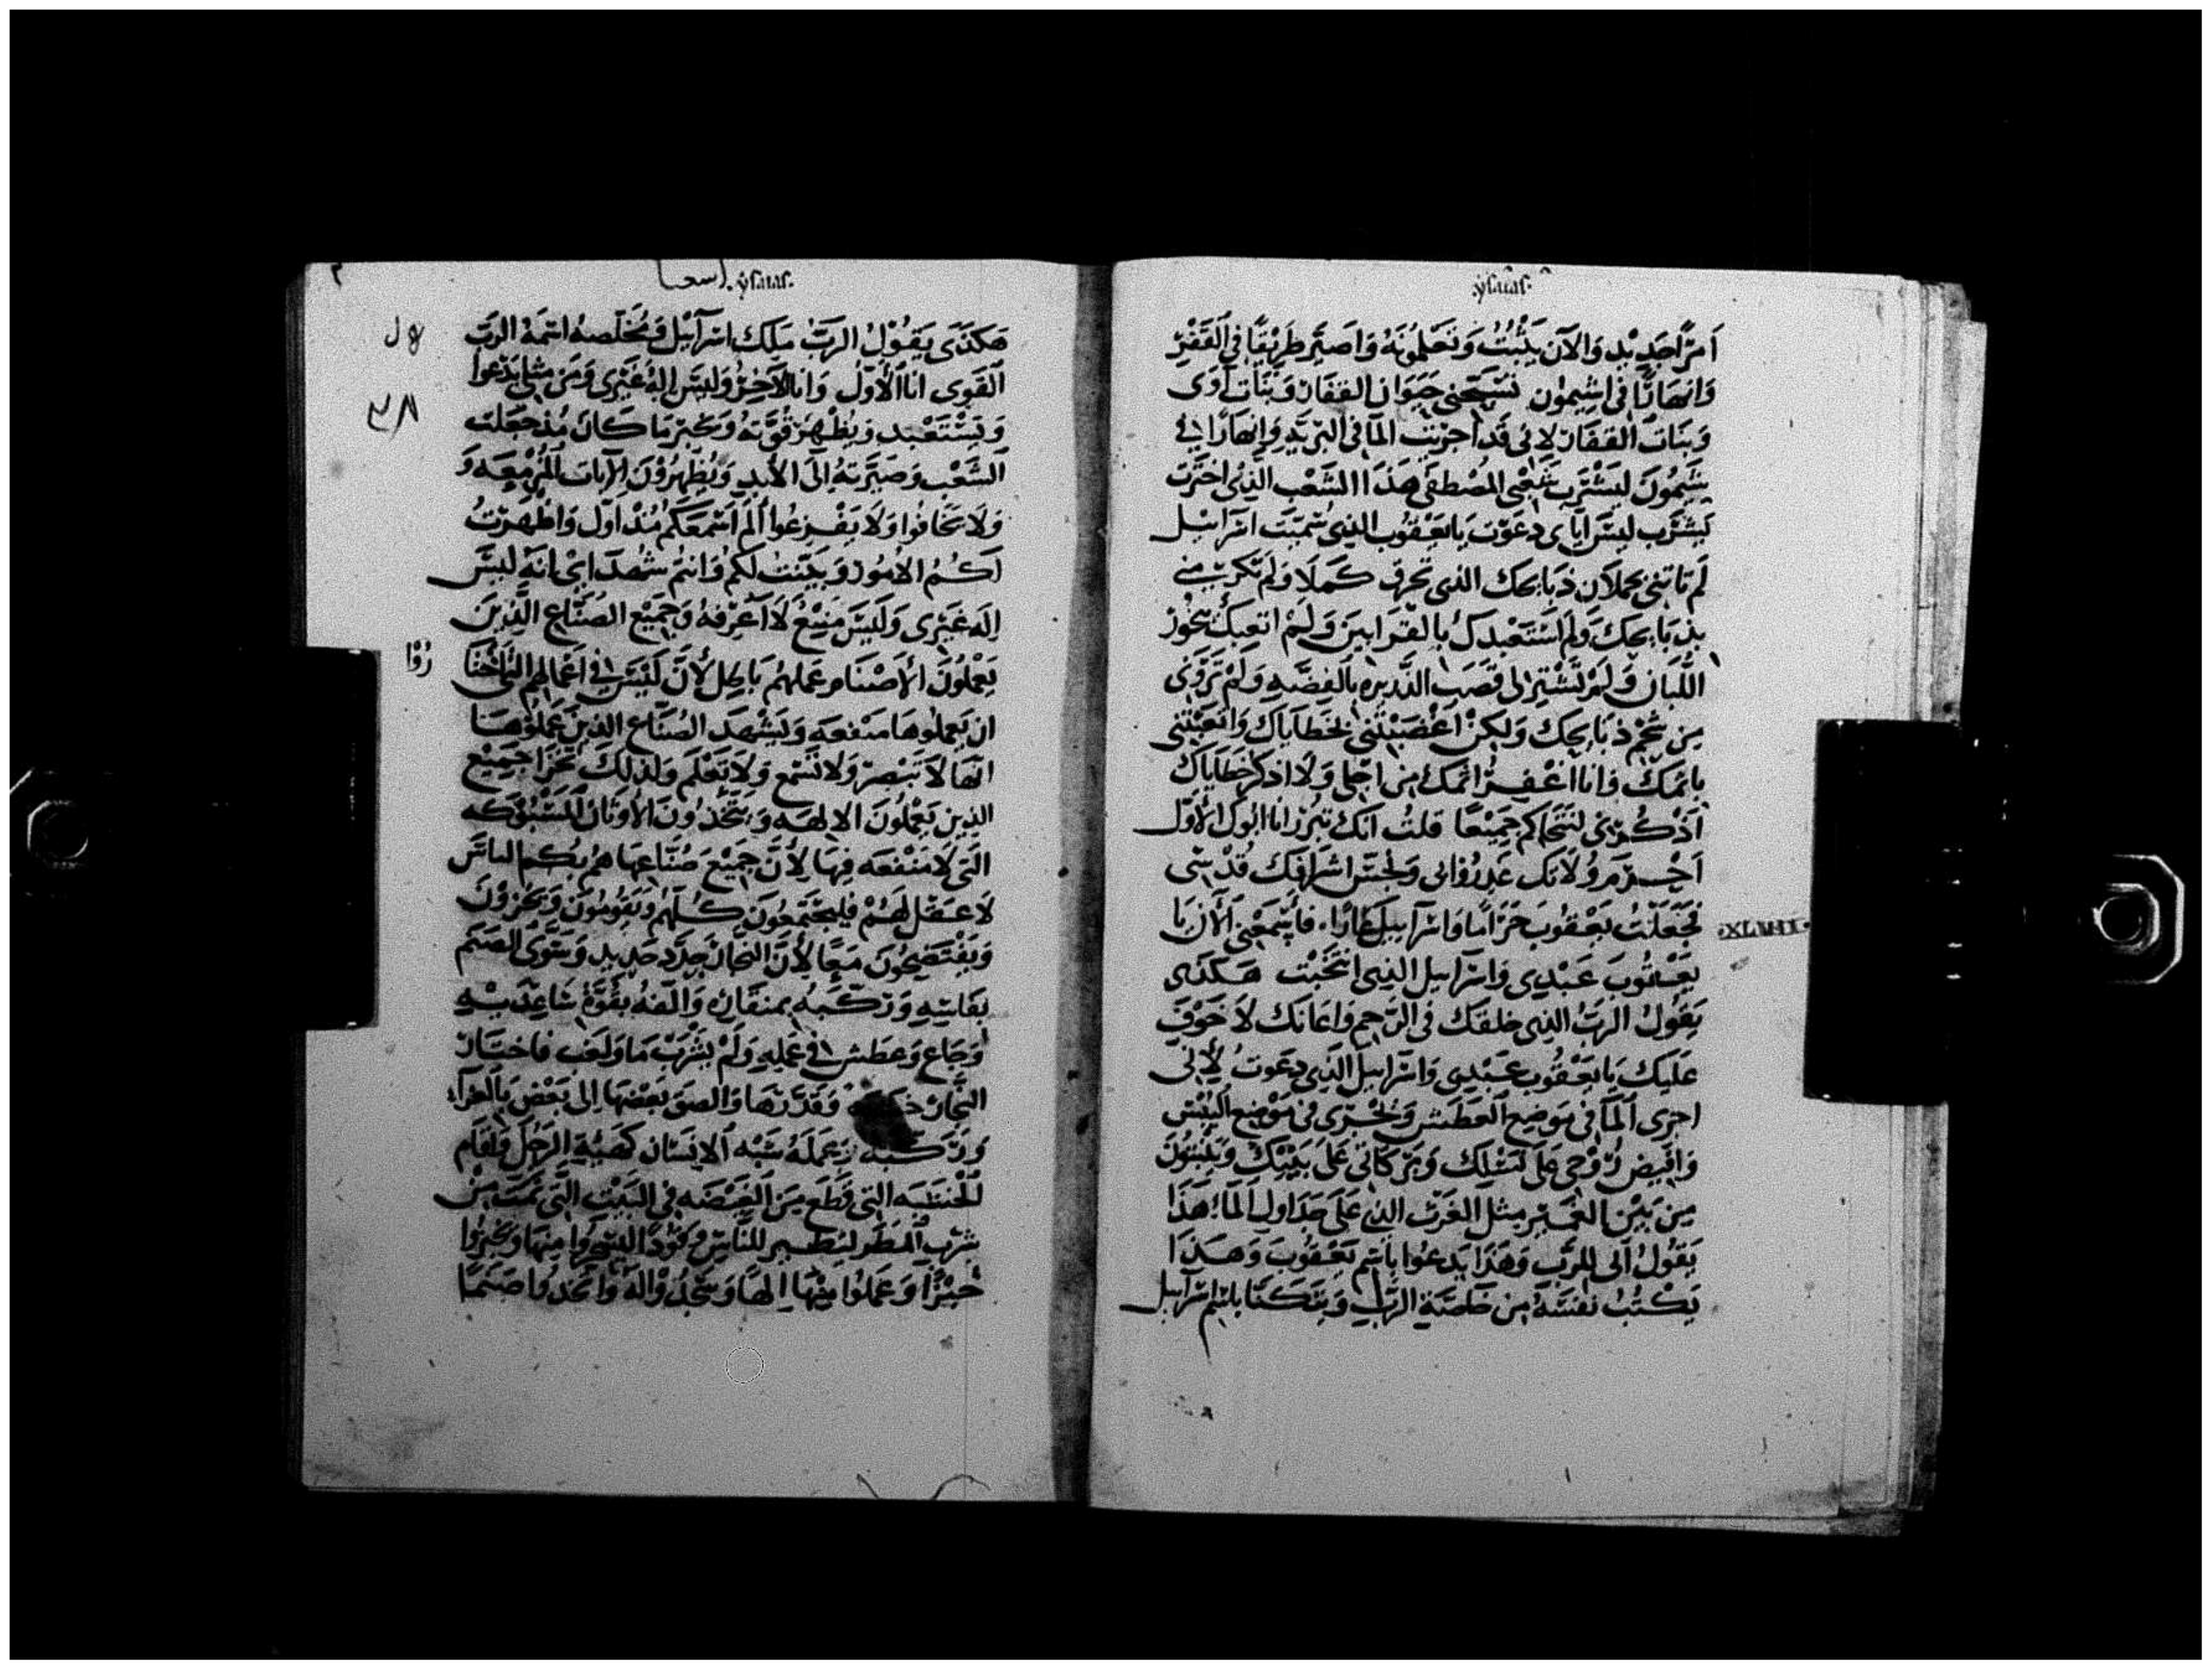 ysaias.
اَمرًا جَدِيْدٍ وَالآن يَنْبُتُ وَتَعْلمُونَهُ وَاصَيّر طَرِيْقًا فِي القَفْرِ
وَانهَارًا فى اشِيمُون تُسَبّحني حَيَوَان القفَار وَبَنَات آوَى
وَبَنَات القفَار لاِنى قَد اجرَيت المَا فى البَريَّهِ وَانهَارًا في
يَشِيمُونَ ليَشْرَب شَعْبى المُصْطفَى هَذَا الشَعْب الذِى اخترَت
لَيشرَب ليسَ ايّاى دعَوت يَا يعَقوب الذِى سُمّيت اسرَآيل
لم تَاتِنى بحملاَن ذبَايحك الذى تحرق كَملاً وَلم تكرمنى
بذبَايحكَ وَلم استَعْبدكَ بالقرَابينَ وَلَمْ اتعِبكَ بخُورْ
اللُّبَان وَلَمْ تَشْتر لى قَصَب الذَّريره بالفِضَّهِ وَلَمْ تروِنى
مِن شَحْم ذبَايحِك وَلكن اغضَبْتَنى بخَطايَاكَ وَاتعَبْتنى
باثمكَ وَانا اغْفِرُ اثمك مِن اجلى وَلا اذكر خَطاياكَ
اذْكُرْنى لنَتحَاكم جَميْعًا قلتُ انك تبرر انا ابوك الاوّل
اجْرمَ وَ وُلاتك غدرُوا بى وَنجّس اشرَافك قُدْسى
فجعَلْتُ يَعْقوبَ حرَامًا وَاسرآييلَ عَارًا. فَاسْمَعْنى الآن يَا
·XLIIII·
يَعْقوبَ عَبْدِى وَاسرَاييل الذِى انتَخَبْت هَكذَى
يَقولُ الربُّ الذِى خلقكَ فى الرَّحِم وَاعَانَك لاَ خَوْفَ
عَليكَ يَا يَعْقُوب عَبْدِى وَاسرَاييلَ الذِى دعَوت لِأَنى
اجرى المَا فى مَوضِع العَطَش وَيَجْرى فى مَوْضِع اليُبْس
وَافِيض رُوْحى عَلى نَسْلِكَ وَبَركَاتى عَلى بَنِيْكَ وَيَنبتُونَ
مِن بَيْن العُشبِ مِثل الغَرَب الذى عَلَى جَدَاولِ المَآ؛ هَذَا
يَقُولُ انى للرَّب وَهَذَا يَدعُوا باسْم يَعْقُوبَ وَهَذَا
يَكْتُبُ نَفسَهُ مِن خَاصّيَة الربِّ وَيَتكَنَّا باسْم اسرَآييل
اسعيا .ysaias.
هَكذَى يَقُوْلُ الرَبُّ مَلِك اسْرَآئيْل وَمُخَلِّصهُ اسْمَهُ الربُّ
القَوى انَا الأَوَّلُ وَانَا الآخِرُ وَليسَ الهُ غَيْرى وَمَن مثلى يَدْعُوا
وَيَسْتَعْبد وَيظْهِرَ قُوَّتهُ وَيخبر بمَا كَانَ مُذ جَعَلت
الشَّعْبَ وَصَيَّرتهُ إلَى الأَبدِ وَيُظْهِرُوْنَ الآيَات المُزْمِعَه وَ
وَلاَ تَخَافُوا وَلاَ يَفْزَعُوا أَلَم اسْمعَكُم مُنْذ اوَّل وَاظْهَرْتُ
لَكُمُ الأمُور وَبَيَّنتُ لكم وَانتم شُهدَا اى انَهُ ليسَ
اِلَه غَيْرى وَلَيسَ مَنِيْعٌ لاَ اَعْرِفهُ وَجَمِيْعَ الصُنَّاع الذِينَ
يَعْملُونَ الأَصْنَام عَملهُم بَاطِل لأَنَّ لَيْسَ فى اعْمَالِهم التى احبّوا
ان يَعملُوهَا مَنفَعَه وَيَشْهَد الصُنَّاع الذِينَ عَملُوهَا
انّهَا لاَ تبْصِرُ وَلاَ تَسْمع وَلاَ تَعْلَم وَلذلكَ يخْزَا جَميْعَ
الذين يَعْمِلُونَ الالهَه وَيتَّخذُونَ الأوثَان المَسْبُوْكَه
الّتى لاَ مَنْفَعَه فِيهَا لأَنَّ جَميْعَ صُنَّاعهَا هُم بُكْم الناسَ
لاَ عَقْل لَهُمْ فليجْتَمعُونَ كُلّهُم وَيَقُومُونَ وَيَخْزَوْنَ
وَيَفْتَضِحُونَ مَعًا لأَنَّ النَّجَار جَدَّد حَدِيد وَسَوَّى الصَنَم
بفَاسِهِ وَرَكّبَهُ بمنقَارهِ وَالّفَهُ بقُوَّةْ سَاعِدَيْهِ
وَجَاعَ وَعطشَ فى عَملِهِ وَلَمْ يشْرَبْ مَا وَلَغب فَاختَارَ
النَّجَار وَقدّرهَا وَالصق بَعْضهَا الى بَعْض بَالغرَآ،
وَرَكّبهُ وَعَملَهُ شَبْه الانسَان كَهَيئَةِ الرَجُلَ وَاقَام
الخشَبَه التى قطَع مِنَ الغيْضَه فى البَيْت التى نمَت مِن
شرْب المَطَر لتَصير للنَّاسِ وُقُوْدًا ليسْجُرُوا مِنهَا وَيخبزُوا
خبْزًا وَعَملُوا مِنْهَا الهًا وَسَجَدُوْا لهُ وَاتخذُوا صَنمًا